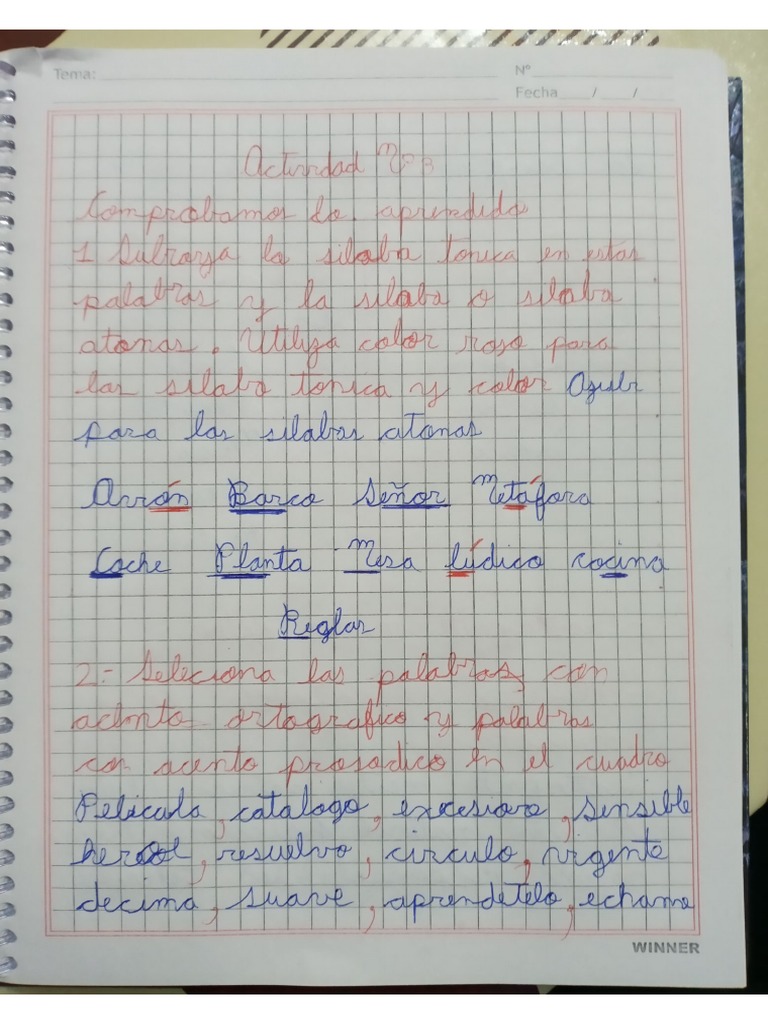 Tema:
Nº
Fecha / /
Actividad Nº 3
Comprobamos lo aprendido
1 Subraya la silaba tonica en estas
palabras y la silaba o silaba
atonas. Utiliza color roso para
las silaba tonica y color Azul
para las silabas atonas
Arrón Barco Señor Metáfora
Coche Planta Mesa lúdico cocina
Reglas
2.- Seleciona las palabras con
acento ortografico y palabras
con acento prosodico en el cuadro
Pelicula, catalogo, excesivo, sensible
resuelvo, circulo, urgente
decima, suave, aprendetelo, echame
WINNER